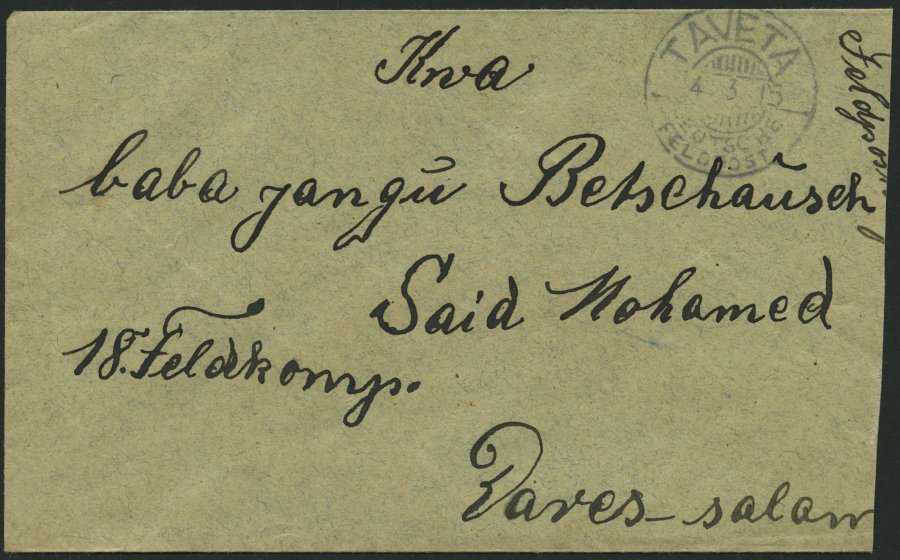 Kwa
baba jangu Betschausch
Said Mohamed
18. Feldkomp.
Dares-salam
Feldpost
TAVETA
4 3 15
DEUTSCHE
FELDPOST